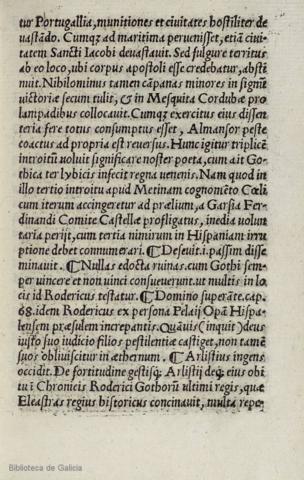 tur Portugallia, munitiones et ciuitates hostiliter de
uastādo. Cumqz ad maritima peruenisset, etiā ciui-
tatem Sancti Iacobi deuastauit. Sed fulgure territus
ab eo loco, ubi corpus apostoli esse credebatur, absti
nuit. Nihilominus tamen cāpanas minores in signū
uictoriæ secum tulit, & in Mesquita Cordubæ pro
lampadibus collocauit. Cumqz exercitus eius dissen
teria fere totus consumptus esset, Almansor peste
coactus ad propria est reuersus. Hunc igitur triplicē
introitū uoluit significare noster poeta, cum ait Go-
thica ter lybicis infecit regna uenenis. Nam quod in
illo tertio introitu apud Metinam cognomēto Cœli
cum iterum accingeretur ad prælium, a Garsia Fer-
dinandi Comite Castellæ profligatus, inedia volun
taria perijt, cum tertia nimirum in Hispaniam irru
ptione debet connumerari. ¶ Deseuit.i. passim disse
minauit. ¶ Nullas edocta ruinas. cum Gothi sem-
per vincere et non vinci consueuerunt. ut multis in lo
cis id Rodericus testatur. ¶ Domino superāte. cap.
68. idem Rodericus ex persona Pelaij Opā Hispa-
lensem præsulem increpantis. Quāuis (inquit) deus
iusto suo iudicio filios pestilentiæ castiget, non tamē
suos obliuiscitur in æthernum. ¶ Arlistius ingens
occidit. De fortitudine gestisq; Arlistij deq; eius obi
tu ī Chronicis Roderici Gothorū ultimi regis, quæ
Eleastras regius historicus concinauit, multa repe-
Biblioteca de Galicia